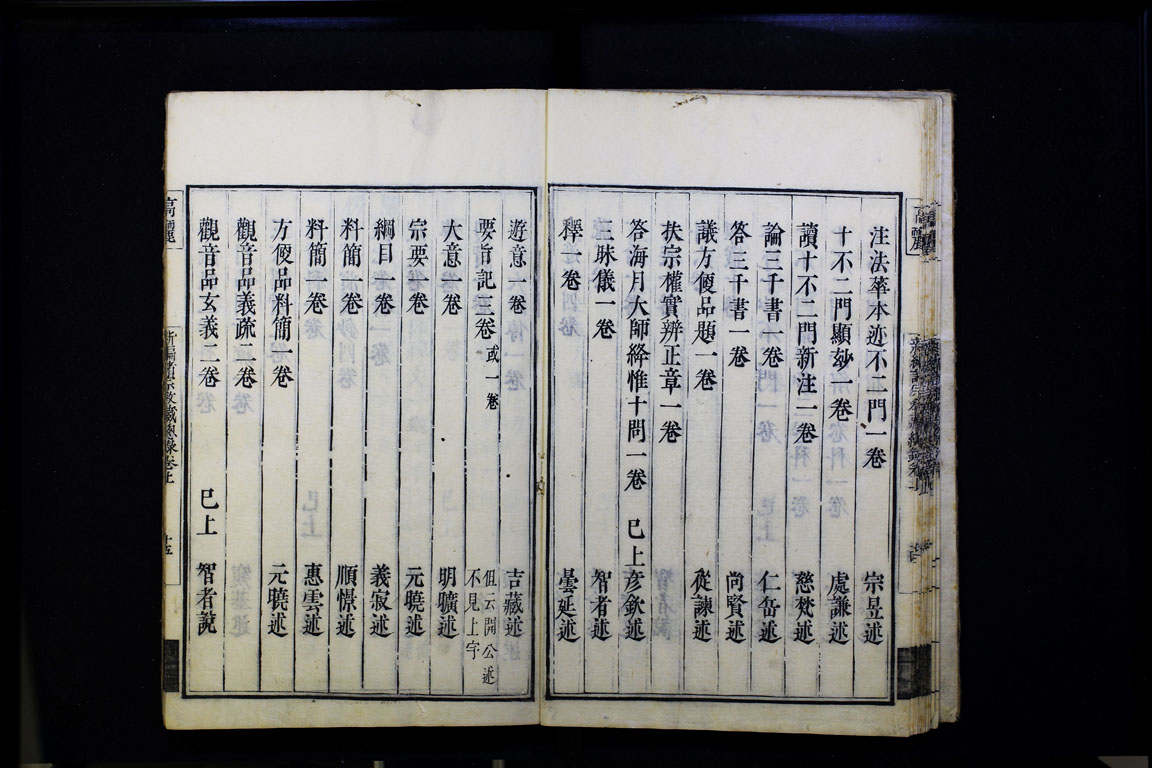 注法華本迹不二門一卷 宗昱述
十不二門顯妙一卷 處謙述
讀十不二門新注一卷 慈梵述
論三千書一卷 仁岳述
答三千書一卷 尚賢述
議方便品題一卷 從諫述
扶宗權實辨正章一卷
答海月大師絳惟十問一卷 已上彥欽述
三昧儀一卷 智者述
釋一卷 曇延述
遊意一卷 吉藏述
要旨記三卷 或一卷 但云開公述不見上字
大意一卷 明曠述
宗要一卷 元曉述
綱目一卷 義寂述
料簡一卷 順憬述
料簡一卷 惠雲述
方便品料簡一卷 元曉述
觀音品義疏二卷
觀音品玄義二卷 已上 智者說
高麗
新編諸宗教藏總錄卷上
十五